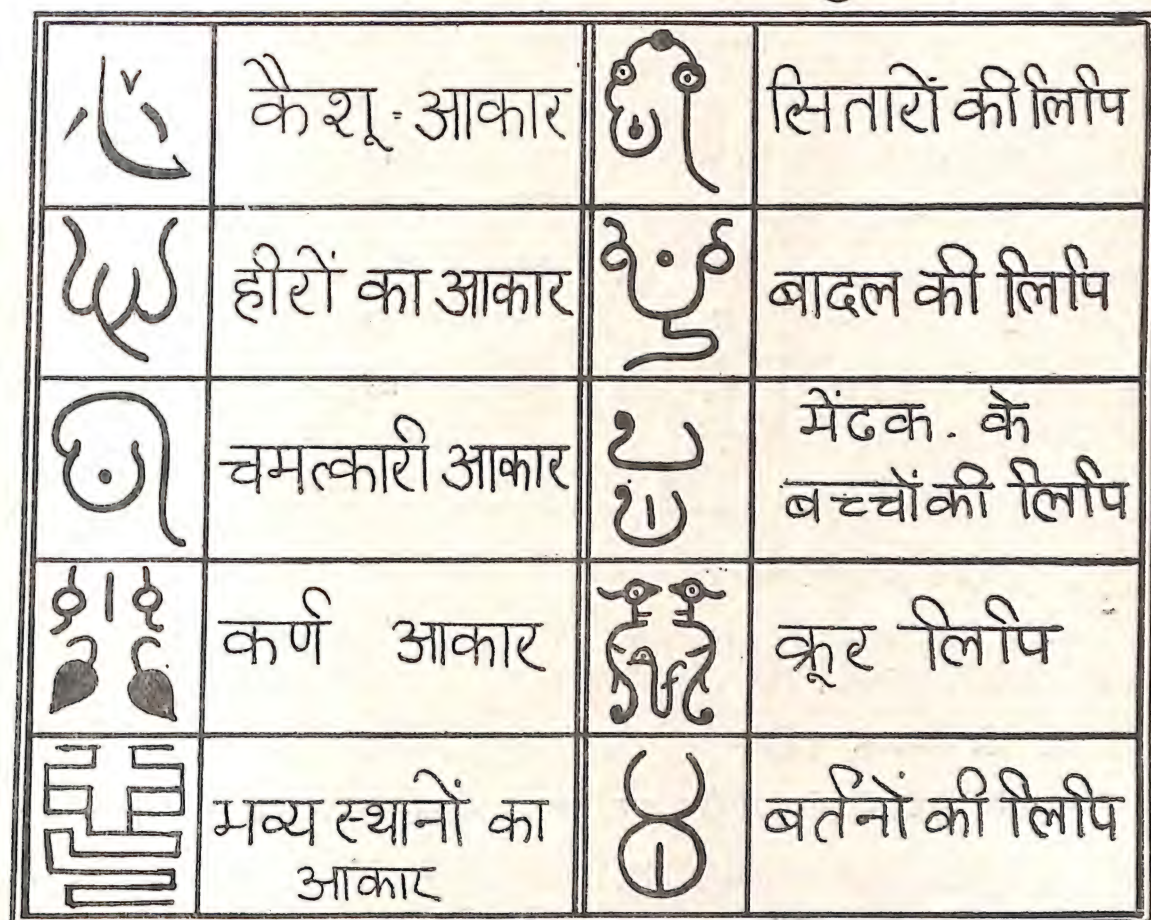 कैशू - आकार
सितारों की लिपि
हीरों का आकार
बादल की लिपि
चमत्कारी आकार
मेंढक. के
बच्चों की लिपि
कर्ण आकार
क्रूर लिपि
मव्य स्थानों का
आकार
बर्तनों की लिपि